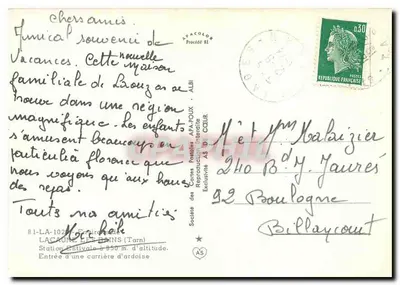 chers amis.
Amical souvenir de
Vacances. Cette nouvelle maison
familiale de Bouzas se
trouve dans une région
magnifique. Les enfants
s'amusent beaucoup en
particulier florence que
nous voyons qu'aux heures
des repas.
Touts nos amitiés
Michèle
81-LA-102
LACAUNE LES BAINS (Tarn)
Station Estivale à 850 m. d'altitude.
Entrée d'une carrière d'ardoise
APACOLOR
Procédé 63
Société des Cartes Postales APA-POUX - ALBI
Reproduction interdite
Exclusivité AS DE CŒUR
AS
0,30
POSTES
REPUBLIQUE FRANÇAISE
M. et Mme Mabizier
240 Bd J. Jaurès
92 Boulogne
Billancourt